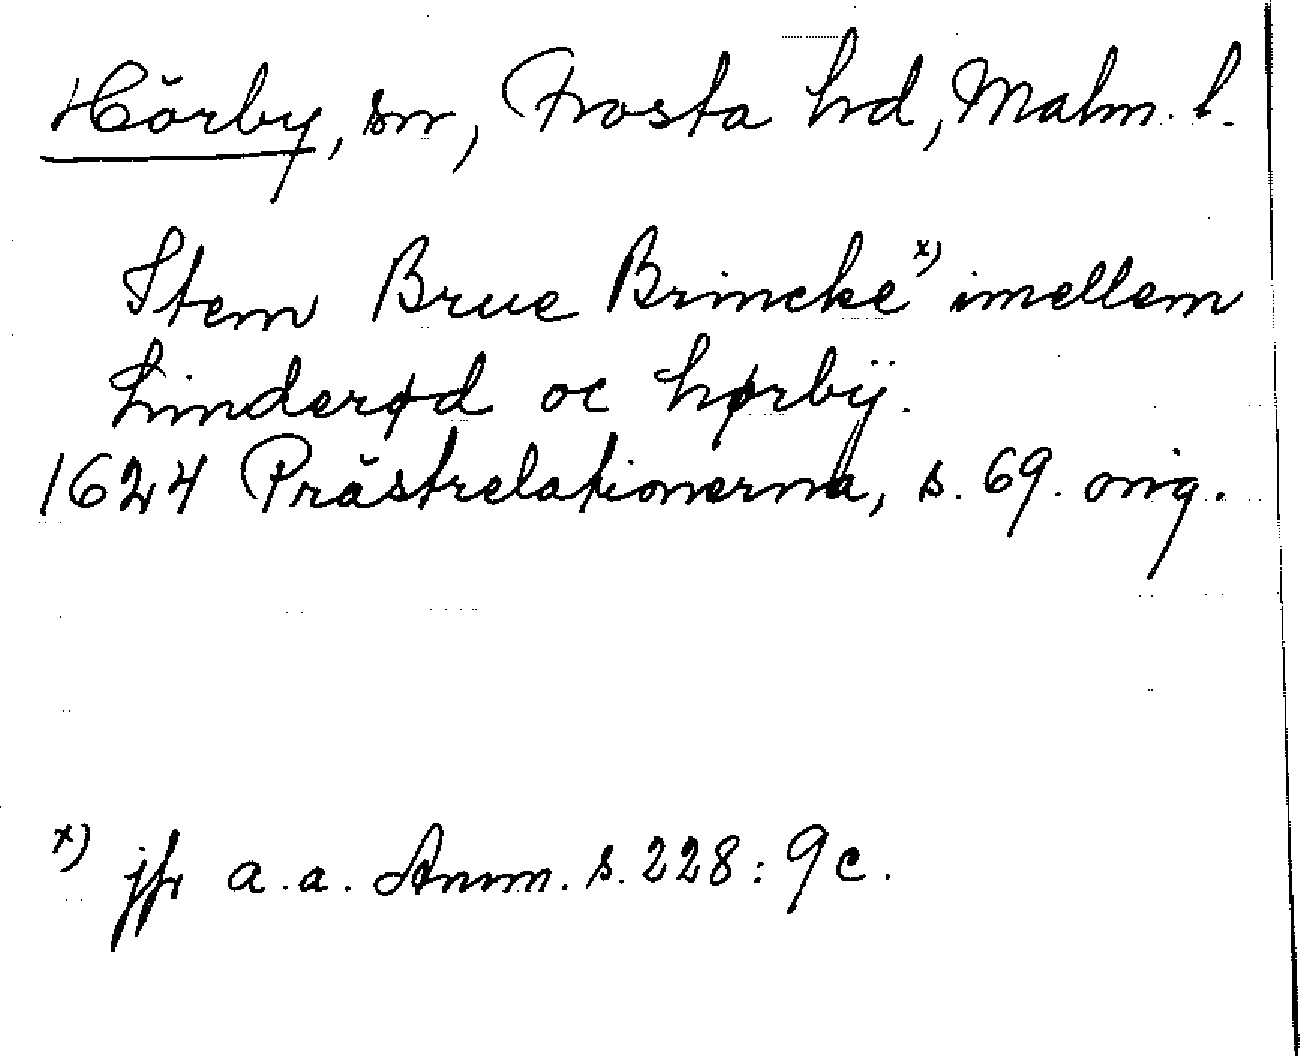 Hörby, sn, Frosta hd, Malm. l.
Stem Brue Brincke x) imellem
Linderød oc hørbÿ.
1624 Prästrelationerna, s. 69. orig.
x) jfr a.a. Anm. s. 228: 9c.